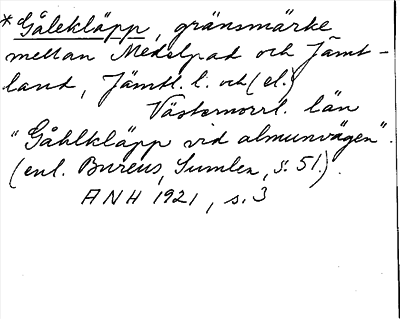 *Gålekläpp, gränsmärke
mellan Medelpad och Jämt-
land, Jämtl. l. och (el.)
Västernorrl. län
"Gåhlkläpp vid almunvägen".
(enl. Bureus, Sumlen, s. 51.).
ANH 1921, s. 3